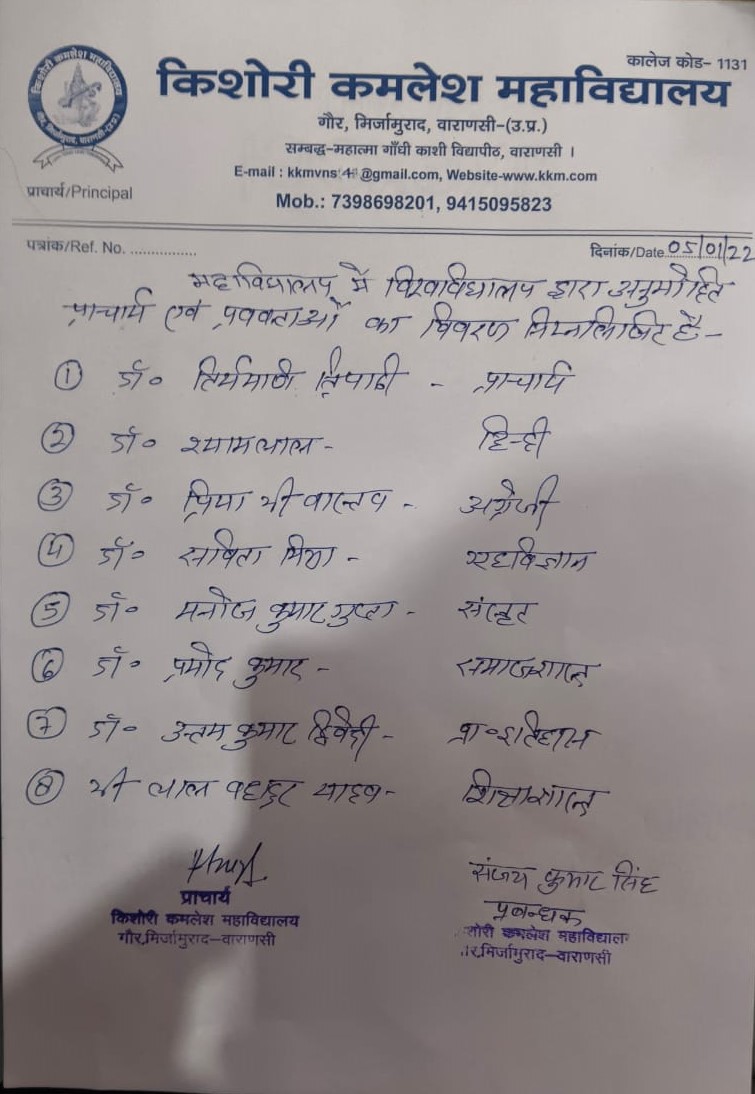 कालेज कोड- 1131
किशोरी कमलेश महाविद्यालय
गौर, मिर्जामुराद, वाराणसी-(उ.प्र.)
सम्बद्ध-महात्मा गाँधी काशी विद्यापीठ, वाराणसी ।
E-mail : kkmvns @gmail.com, Website-www.kkm.com
प्राचार्य/Principal
Mob.: 7398698201, 9415095823
पत्रांक/Ref. No. ................
दिनांक/Date 05/01/22
महाविद्यालय में विश्वविद्यालय द्वारा अनुमोदित
प्राचार्य एवं प्रवक्ताओं का विवरण निम्नलिखित है-
① डॉ० त्रिपाठी - प्राचार्य
② डॉ० श्यामलाल - हिन्दी
③ डॉ० प्रिया श्रीवास्तव - अंग्रेजी
④ डॉ० सविता मिश्रा - गृहविज्ञान
⑤ डॉ० मनोज कुमार गुप्ता - संस्कृत
⑥ डॉ० प्रमोद कुमार - समाजशास्त्र
⑦ डॉ० उत्तम कुमार द्विवेदी - प्रा० इतिहास
⑧ श्री लाल बहादुर यादव - शिक्षाशास्त्र
प्राचार्य
किशोरी कमलेश महाविद्यालय
गौर,मिर्जामुराद-वाराणसी
संजय कुमार सिंह
प्रबन्धक
शोरी कमलेश महाविद्याल
र,मिर्जामुराद-वाराणसी